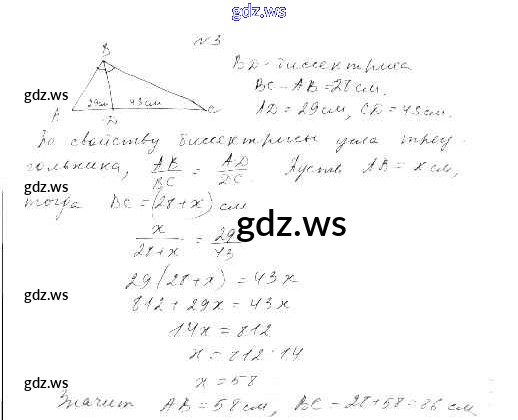 gdz.ws
№3
B
29см 43см
A D C
BD - биссектриса
BC - AB = 28 см.
AD = 29 см, CD = 43 см.
gdz.ws
gdz.ws
По свойству биссектрисы угла треу-
гольника, AB/BC = AD/DC. Пусть AB = x см,
gdz.ws
тогда BC = (28 + x) см
x/28+x = 29/43
gdz.ws
29(28 + x) = 43x
gdz.ws
812 + 29x = 43x
14x = 812
x = 812 : 14
x = 58
gdz.ws
Значит AB = 58 см, BC = 28 + 58 = 86 см